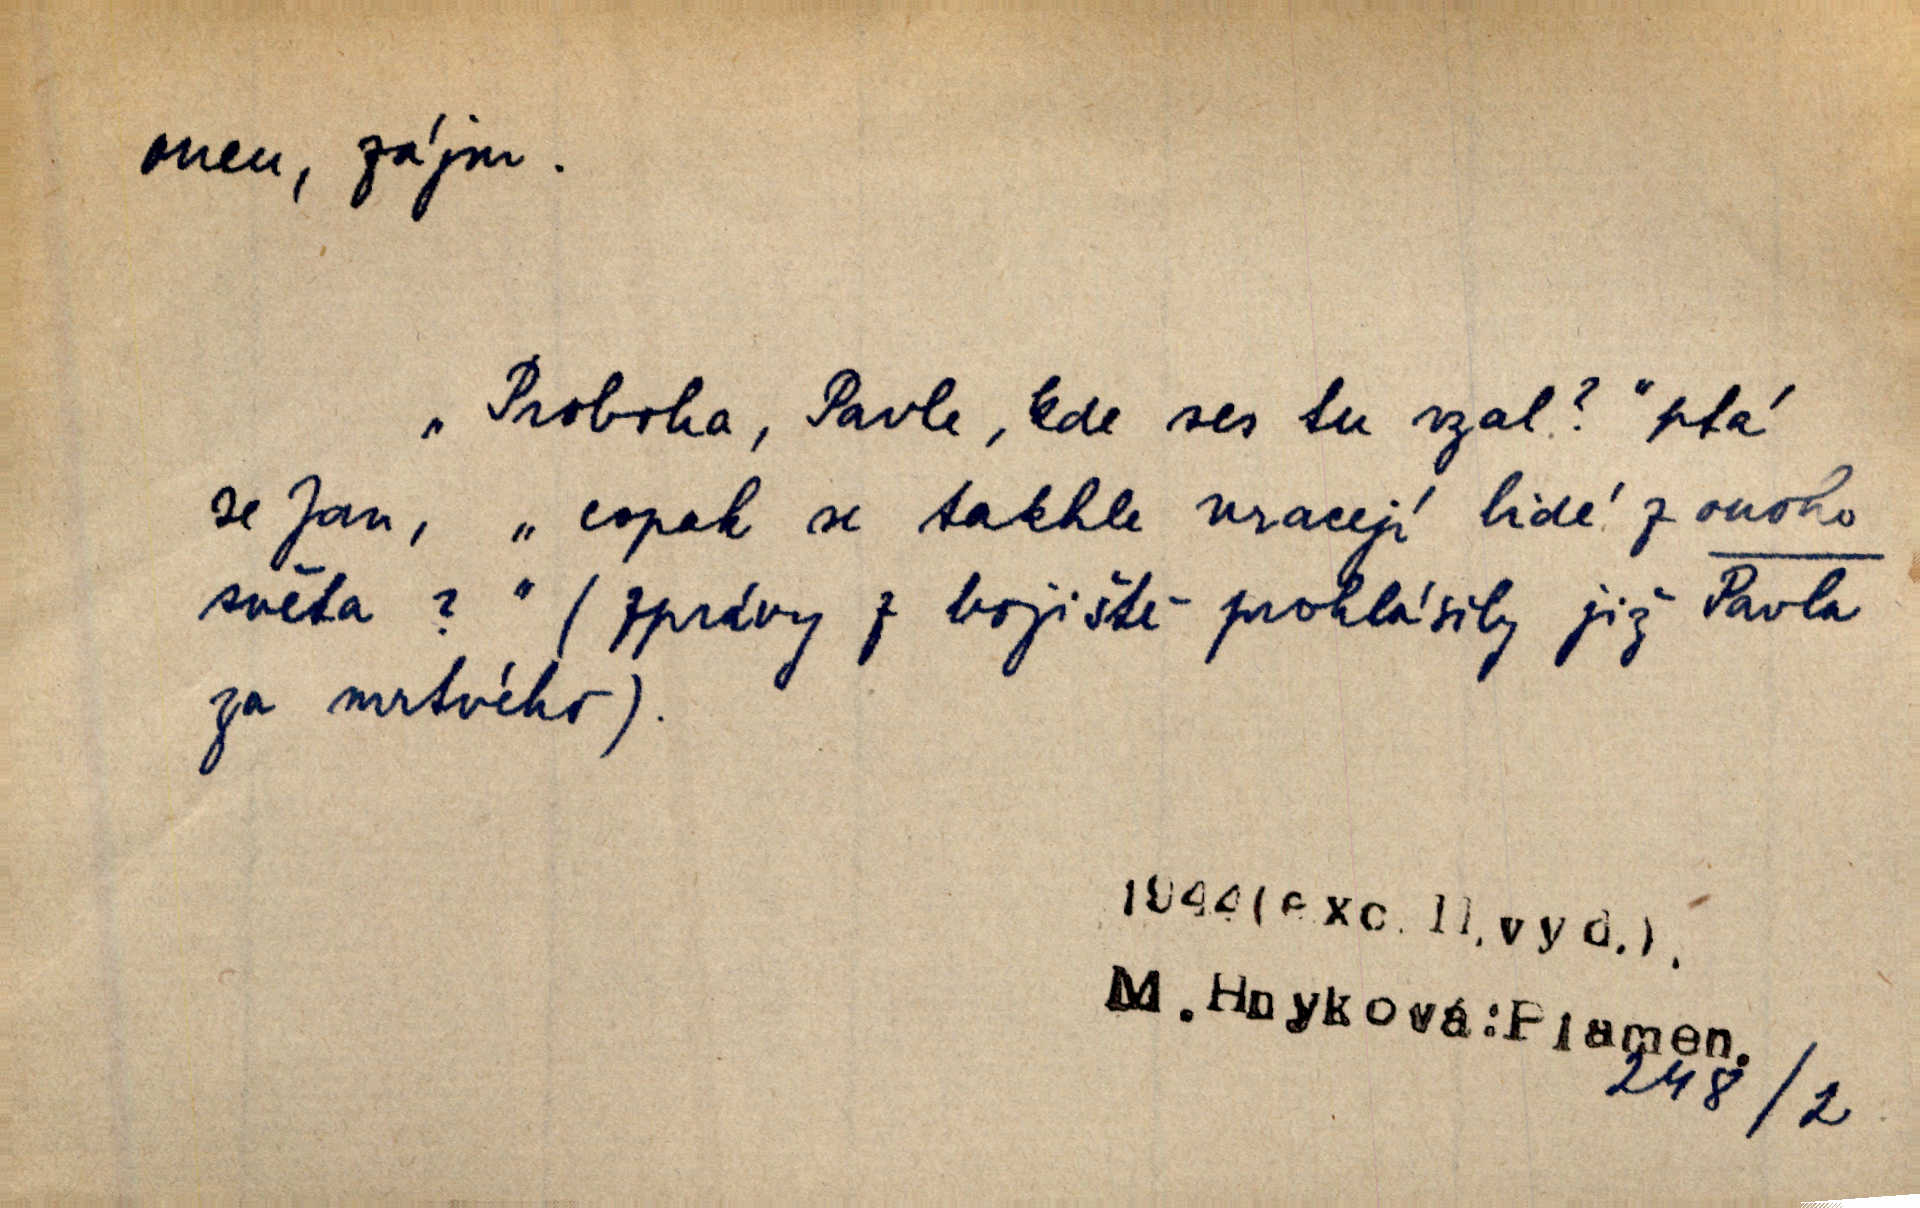 onen, zájm.
„Proboha, Pavle, kde ses tu vzal?" ptá
se Jan, „copak se takhle vracejí lidé z onoho
světa?" (zprávy z bojiště prohlásily již Pavla
za mrtvého).
1944(exc. II.vyd.).
M.Hnyková:Plamen.
248/2